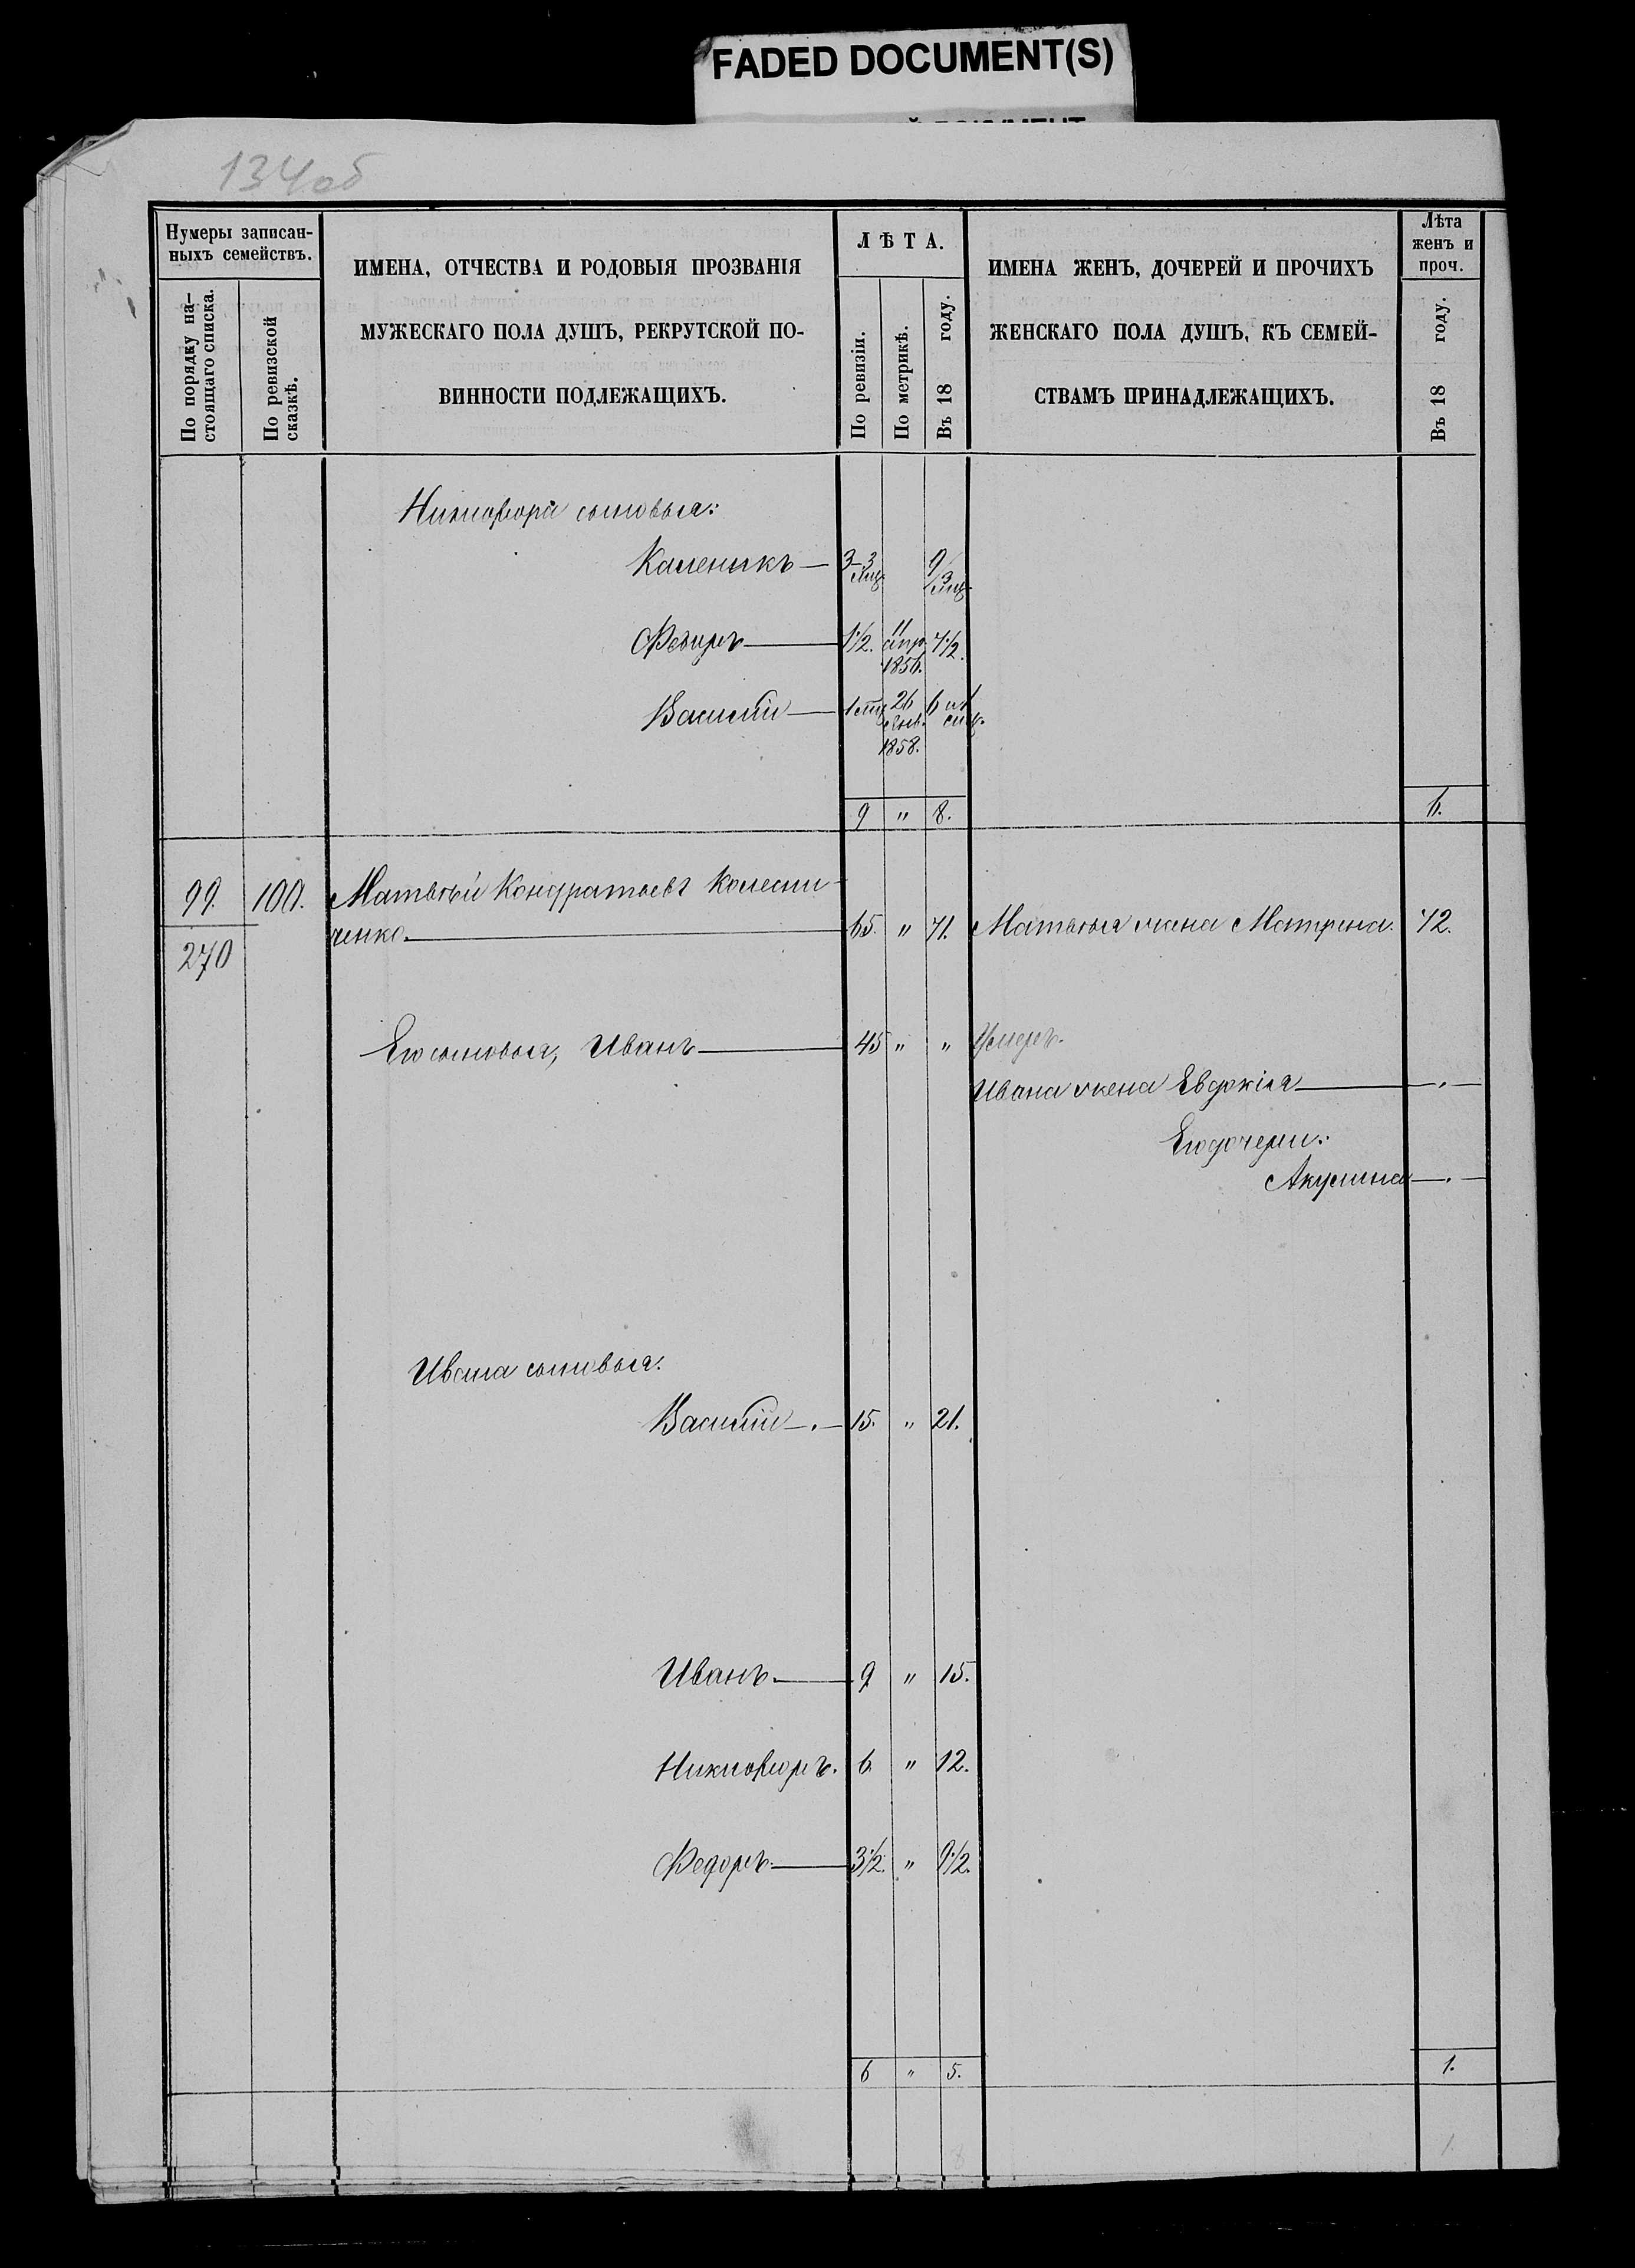 FADED DOCUMENT(S)
134об
Нумеры записан-
ныхъ семействъ.
По порядку на-
стоящаго списка.
По ревизской
сказкѣ.
ИМЕНА, ОТЧЕСТВА И РОДОВЫЯ ПРОЗВАНІЯ
МУЖЕСКАГО ПОЛА ДУШЪ, РЕКРУТСКОЙ ПО-
ВИННОСТИ ПОДЛЕЖАЩИХЪ.
ЛѢТА.
По ревизіи.
По метрикѣ.
Въ 18 году.
ИМЕНА ЖЕНЪ, ДОЧЕРЕЙ И ПРОЧИХЪ
ЖЕНСКАГО ПОЛА ДУШЪ, КЪ СЕМЕЙ-
СТВАМЪ ПРИНАДЛЕЖАЩИХЪ.
Лѣта
женъ и
проч.
Въ 18 году.
Никифора сыновья:
Каленикъ — 3 3 мѣс 9 3 мѣс
Федоръ — 1½. 11 апр. 1856. 7½.
Василій — 1 мѣс 26 1858. 6 и 1 мѣс.
9 " 8. 6.
99. 100. Матвѣй Кондратьевъ Колесни-
270 ченко. — 65. " 71. Матвѣя жена Матрена. 72.
Его сыновья, Иванъ — 45 " " Умеръ.
Ивана жена Евдокія — . —
Его дочери:
Акулина — . —
Ивана сыновья.
Василій — . — 15. " 21.
Иванъ. — 9 " 15.
Никифоръ. 6 " 12.
Федоръ — 3½. " 9½.
6 " 5. 1.